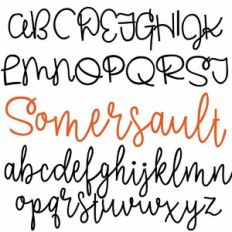 ABCDEFGHIJK
LMNOPQRSTJ
Somersault
abcdefghijklm
opqrstuvwxyz